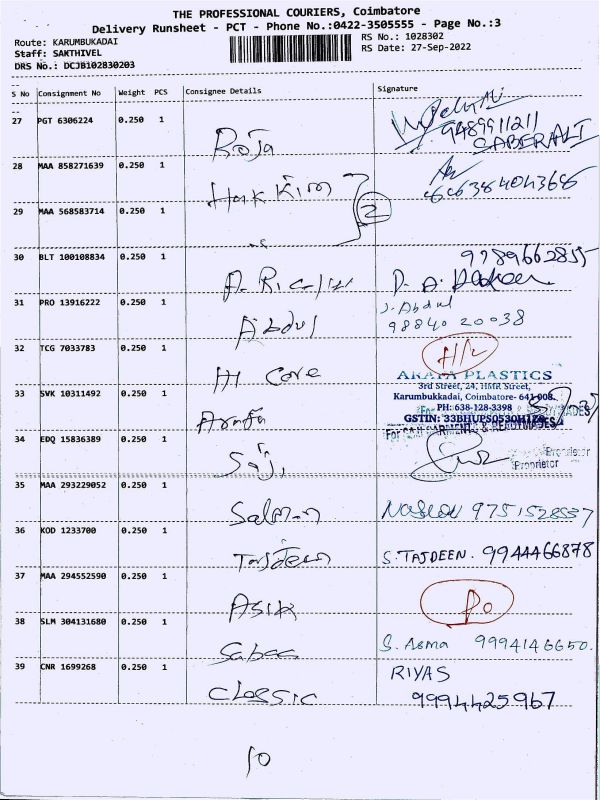 THE PROFESSIONAL COURIERS, Coimbatore
Delivery Runsheet - PCT - Phone No.:0422-3505555 - Page No.:3
Route: KARUMBUKADAI RS No.: 1028302
Staff: SAKTHIVEL RS Date: 27-Sep-2022
DRS No.: DCJB102830203
S No Consignment No Weight PCS Consignee Details Signature
27 PGT 6306224 0.250 1
Roja 9489911211
CABERALI
28 MAA 858271639 0.250 1
Hakkim 2
29 MAA 568583714 0.250 1
30 BLT 100108834 0.250 1 9789662855
31 PRO 13916222 0.250 1 J. Abdul
Abdul 98840 20038
32 TCG 7033783 0.250 1
HI Care
ARAFA PLASTICS
3rd Street, 24, HMR Street,
33 SVK 10311492 0.250 1 Karumbukkadai, Coimbatore- 641 008.
PH: 638-128-3398
Arafa GSTIN: 33BHUPS0530H1Z6
34 EDQ 15836389 0.250 1
Saji Proprietor
Proprietor
35 MAA 293229052 0.250 1
Salman
36 KOD 1233700 0.250 1
Tajdeen S. TAJDEEN. 9944466878
37 MAA 294552590 0.250 1
Asik
38 SLM 304131680 0.250 1
S. Asma 9994146650.
39 CNR 1699268 0.250 1 RIYAS
Classic 9994425967
10